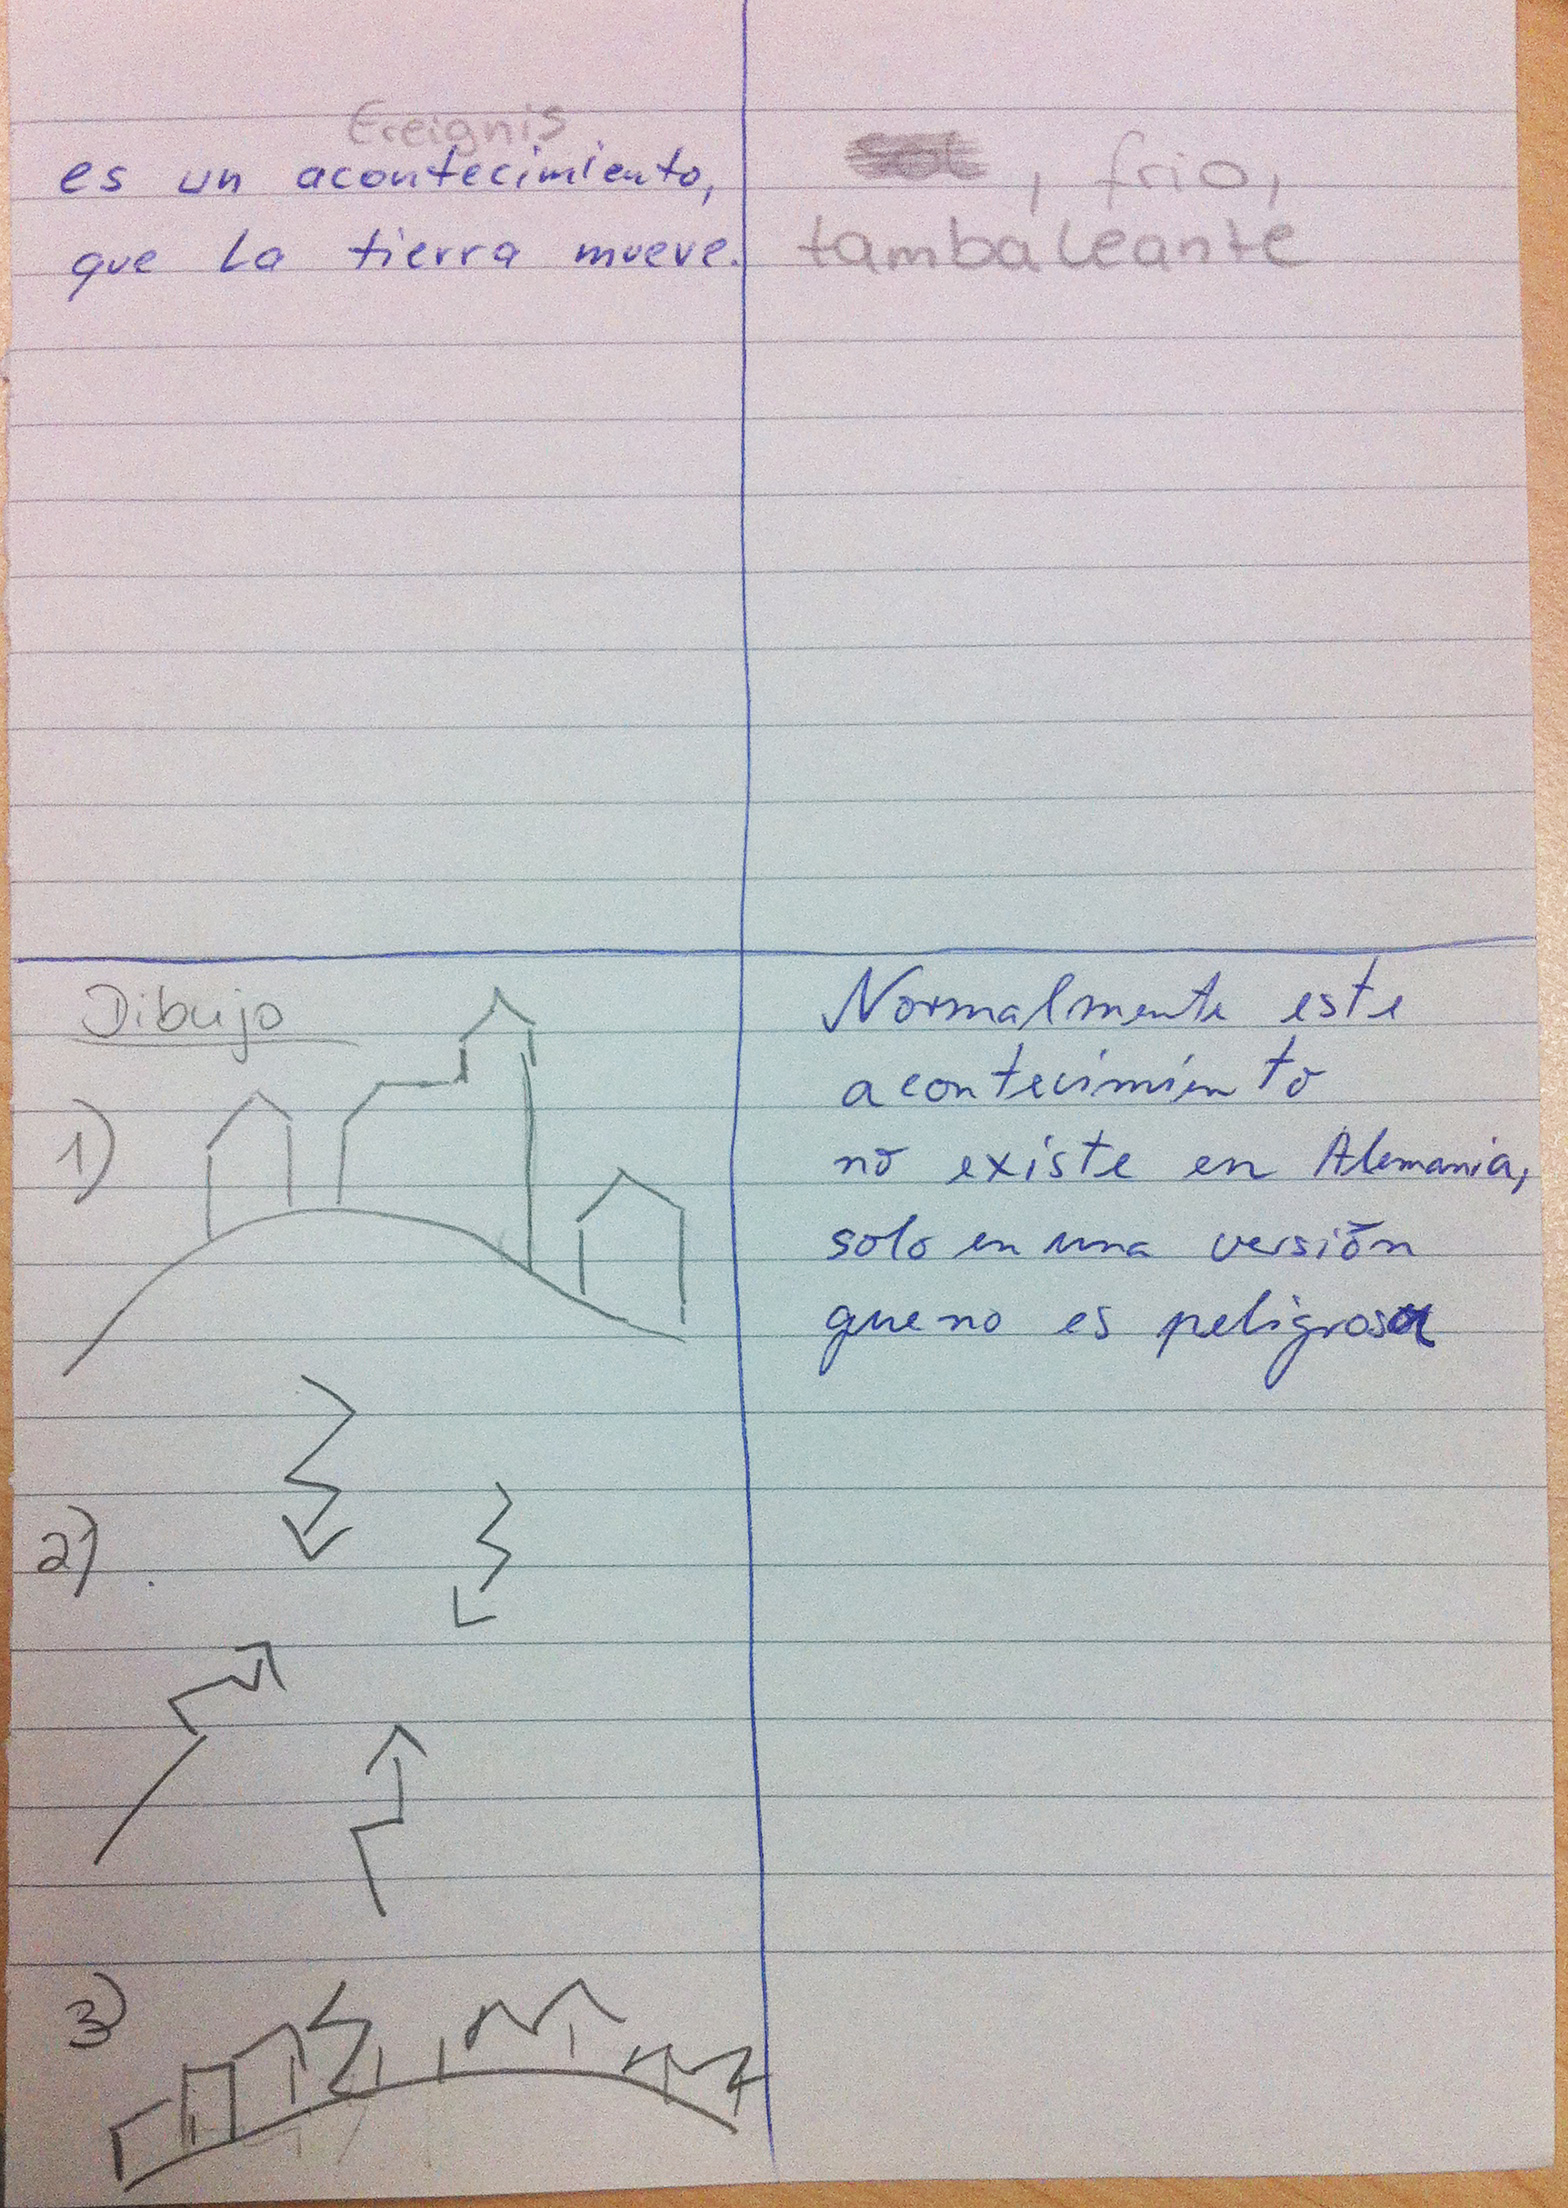 Ereignis
es un acontecimiento,
que la tierra mueve.
, frio,
tambaleante
Dibujo
1)
2)
3)
Normalmente este
acontecimiento
no existe en Alemania,
solo en una versión
que no es peligrosa